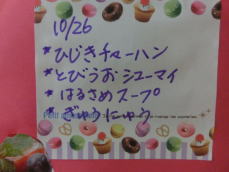 10/26
*ひじきチャーハン
*とびうおシューマイ
*はるさめスープ
*ぎゅうにゅう